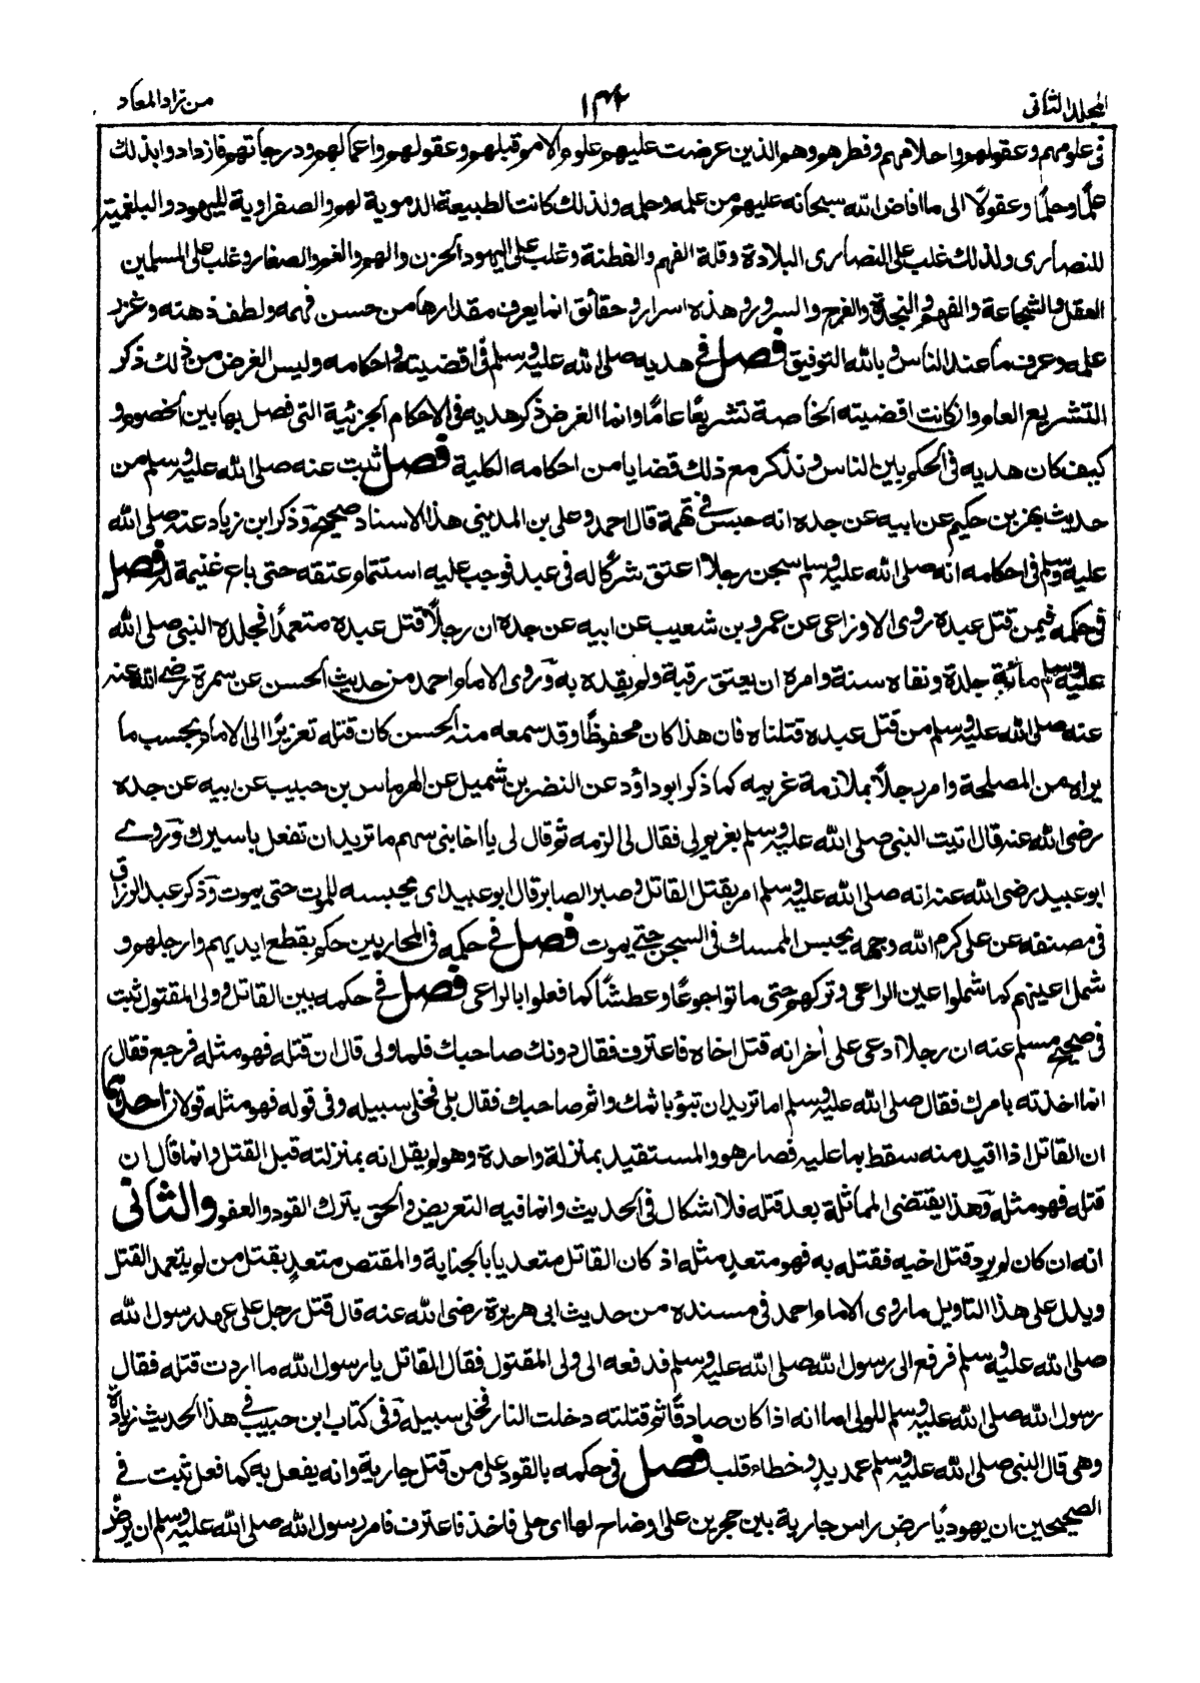 المجلد الثاني
١٣٢
من زاد المعاد
في علومهم وعقولهم واحلامهم وفطرهم وهم الذين عرضت عليهم علوم الامم قبلهم وعقولهم واعمالهم ودرجاتهم فازدادوا بذلك
علمًا وحلمًا وعقولًا الى ما افاض الله سبحانه عليهم من علمه وحلمه ولذلك كانت الطبيعة الدموية لهم والصفراوية لليهود والبلغمية
للنصارى ولذلك غلب على النصارى البلادة وقلة الفهم والفطنة وغلب على اليهود الحزن والهم والغم والصغار وغلب على المسلمين
العقل والشجاعة والفهم والنجدة والفرح والسرور وهذه اسرار وحقائق انما يعرف مقدارها من حسن فهمه ولطف ذهنه وغزر
علمه وعرف ما عند الناس وبالله التوفيق فصل في هديه صلى الله عليه وسلم في اقضيته واحكامه وليس الغرض من ذلك ذكر
التشريع العام وان كانت اقضيته الخاصة تشريعًا عامًا وانما الغرض ذكر هديه في الاحكام الجزئية التي فصل بها بين الخصوم و
كيف كان هديه في الحكم بين الناس ونذكر مع ذلك قضايا من احكامه الكلية فصل ثبت عنه صلى الله عليه وسلم من
حديث بهز بن حكيم عن ابيه عن جده انه حبس في تهمة قال احمد وعلي بن المديني هذا الاسناد صحيح وذكر ابن زياد عنه صلى الله
عليه وسلم في احكامه انه صلى الله عليه وسلم سجن رجلا اعتق شركًا له في عبد فوجب عليه استتمام عتقه حتى باع غنيمة له فصل
في حكمه فيمن قتل عبده روى الاوزاعي عن عمرو بن شعيب عن ابيه عن جده ان رجلًا قتل عبده متعمدًا فجلده النبي صلى الله
عليه وسلم مائة جلدة ونفاه سنة وامره ان يعتق رقبة ولم يقده به وروى الامام احمد من حديث الحسن عن سمرة رضي الله عنه
عنه صلى الله عليه وسلم من قتل عبده قتلناه فان هذا كان محفوظًا وقد سمعه منه الحسن كان قتله تعزيرًا الى الامام بحسب ما
يراه من المصلحة وامر رجلًا بملازمة غريمه كما ذكر ابو داؤد عن النضر بن شميل عن الهرماس بن حبيب عن ابيه عن جده
رضي الله عنه قال اتيت النبي صلى الله عليه وسلم بغريم لي فقال لي الزمه ثم قال لي يا اخا بني سهم ما تريد ان تفعل باسيرك وروى
ابو عبيد رضي الله عنه انه صلى الله عليه وسلم امر بقتل القاتل وصبر الصابر قال ابو عبيد اي يحبسه للموت حتى يموت وذكر عبد الرزاق
في مصنفه عن علي كرم الله وجهه يحبس الممسك في السجن حتى يموت فصل في حكمه في المحاربين حكم بقطع ايديهم وارجلهم و
شمل اعينهم كما شملوا عين الراعي وتركهم حتى ماتوا جوعًا وعطشًا كما فعلوا بالراعي فصل في حكمه بين القاتل وولي المقتول ثبت
في صحيح مسلم عنه ان رجلا ادعى على اخر انه قتل اخاه فاعترف فقال دونك صاحبك فلما ولى قال ان قتله فهو مثله فرجع فقال
انما اخذته بامرك فقال صلى الله عليه وسلم اما تريد ان تبوٴ باثمك واثم صاحبك فقال بلى فخلى سبيله وفي قوله فهو مثله قولان احدهما
ان القاتل اذا اقيد منه سقط بها عليه فصار هو والمستقيد بمنزلة واحدة وهو لم يقل انه بمنزلته قبل القتل وانما قال ان
قتله فهو مثله وهذا يقتضي المماثلة بعد قتله فلا اشكال في الحديث وانما فيه التعريض والحق بترك القود والعفو والثاني
انه ان كان لم يرد قتل اخيه فقتله به فهو متعدٍ مثله اذ كان القاتل متعديا بالجناية والمقتص متعدٍ بقتل من لم يتعمد القتل
ويدل على هذا التاويل ما روى الامام احمد في مسنده من حديث ابي هريرة رضي الله عنه قال قتل رجل على عهد رسول الله
صلى الله عليه وسلم فرفع الى رسول الله صلى الله عليه وسلم فدفعه الى ولي المقتول فقال القاتل يا رسول الله ما اردت قتله فقال
رسول الله صلى الله عليه وسلم للولي اما انه اذا كان صادقًا ثم قتلته دخلت النار فخلى سبيله وفي كتاب ابن حبيب في هذا الحديث زيادة
وهي قال النبي صلى الله عليه وسلم عمد يدٍ وخطاء قلب فصل في حكمه بالقود على من قتل جارية وانه يفعل به كما فعل ثبت في
الصحيحين ان يهوديًا رض راس جارية بين حجرين على اوضاح لها اي حلي فاخذ فاعترف فامر رسول الله صلى الله عليه وسلم ان يرض